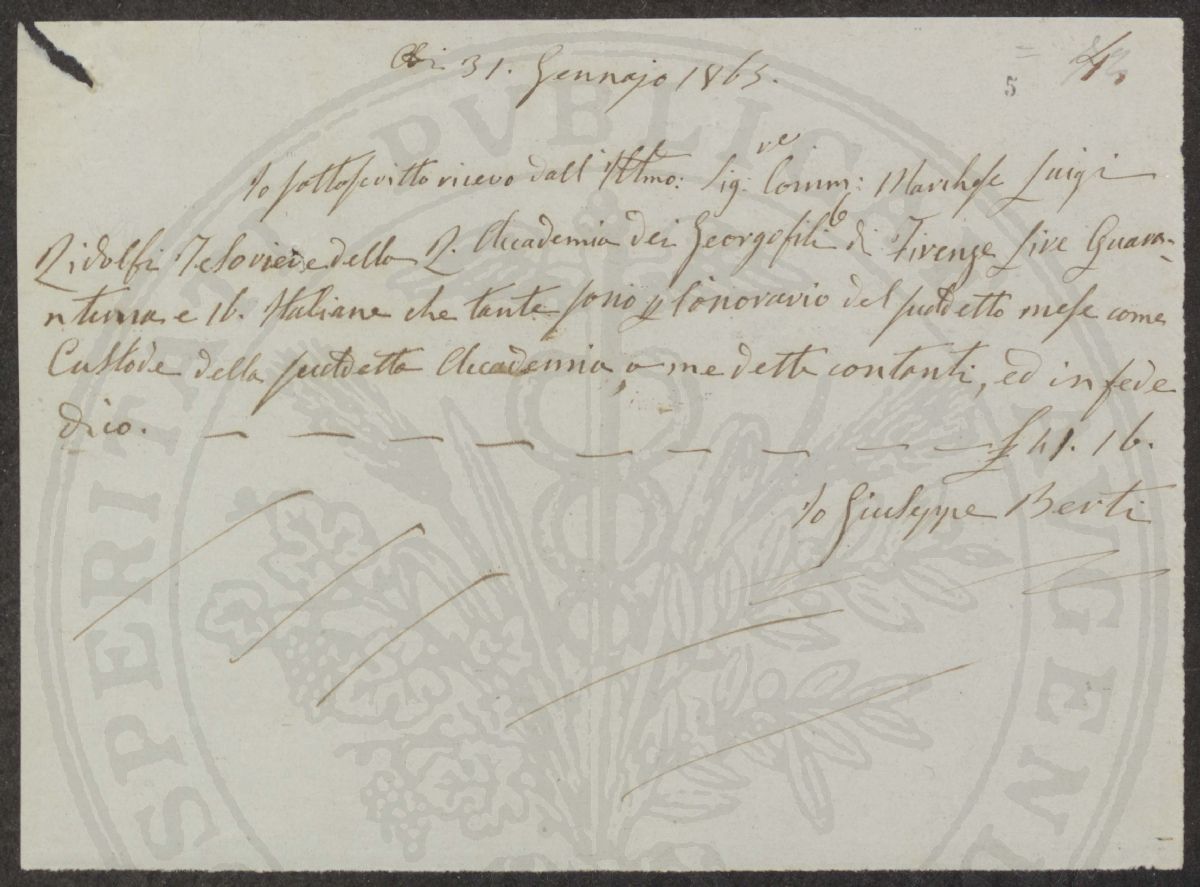 31. Gennajo 1865.
5
Io sottoscritto ricevo dall'Illmo: Sig:re Comm: Marchese Luigi
Ridolfi Tesoriere della R. Accademia dei Georgofili di Firenze Lire Quara-
ntuna e 16. Italiane che tante sono p l'onorario del suddetto mese come
Custode della suddetta Accademia, a me dette contanti, ed in fede
dico. — — — — — — — — — £ 41. 16.
Io Giuseppe Berti
PUBLICAE
PROSPERITATI
AUGENDAE